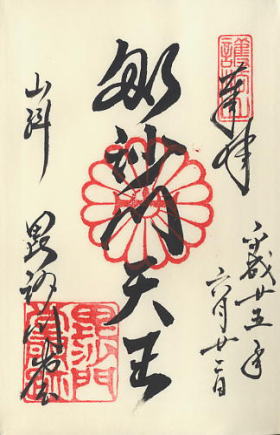 護法山
奉拝
平成廿五年
六月廿二日
毘沙門天王
山科
毘沙門堂
毘沙門